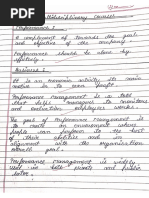 Multidisciplinary courses
Performance :-
A compliment of towards the goals
and objective of the company.
Performance should be done by
effectively.
Business :-
It is an economic activity its main
motive is to earn profit.
Performance management is a tool
that helps managers to monitors
and evaluation employees works.
The goal of Performance management is
to create an environment where
people can perform to the best
of their abilities and in
alignment with the organization
overall goals.
Performance management is widely
used in both private and public
sector.